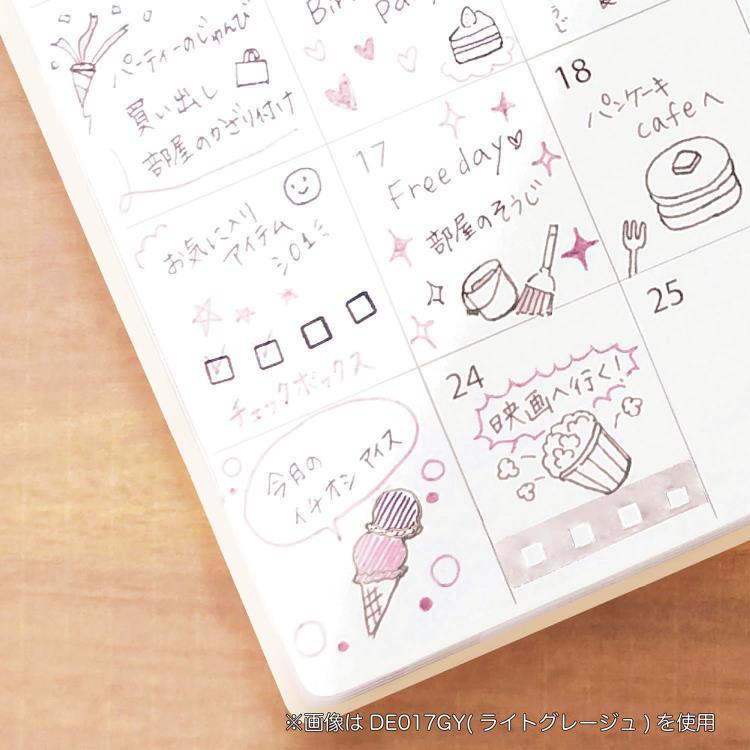 パーティーのじゅんび
買い出し
部屋のかざり付け
18
パンケーキ
cafeへ
17
Free day
部屋のそうじ
お気に入り
アイテム
01
チェックボックス
25
24
映画へ行く!
今月の
イチオシ アイス
※画像は DE017GY(ライトグレージュ)を使用